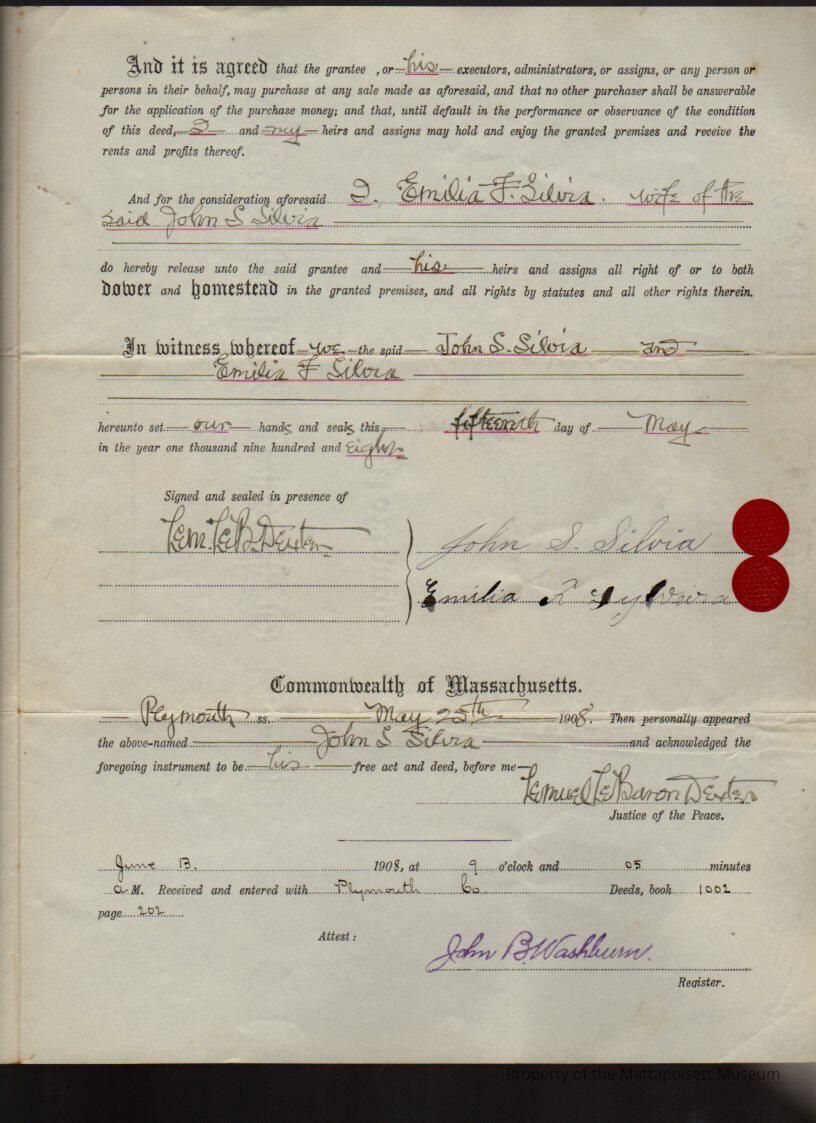 And it is agreed that the grantee , or his executors, administrators, or assigns, or any person or
persons in their behalf, may purchase at any sale made as aforesaid, and that no other purchaser shall be answerable
for the application of the purchase money; and that, until default in the performance or observance of the condition
of this deed, I and my heirs and assigns may hold and enjoy the granted premises and receive the
rents and profits thereof.
And for the consideration aforesaid I, Emilia F. Silvia. wife of the
said John S Silvia
do hereby release unto the said grantee and his heirs and assigns all right of or to both
dower and homestead in the granted premises, and all rights by statutes and all other rights therein.
In witness whereof we the said John S. Silvia and
Emilia F Silvia
hereunto set our hands and seals this fifteenth day of May
in the year one thousand nine hundred and eight
Signed and sealed in presence of
Lem. LeB. Dexter
John S. Silvia
Emilia F Sylveira
Commonwealth of Massachusetts.
Plymouth ss. May 25th 1908. Then personally appeared
the above-named John S Silvia and acknowledged the
foregoing instrument to be his free act and deed, before me
Lemuel LeBaron Dexter
Justice of the Peace.
June 13. 1908, at 9 o'clock and 05 minutes
a. M. Received and entered with Plymouth Co. Deeds, book 1002
page 202
Attest:
John B. Washburn.
Register.
Property of the Mattapoisett Museum